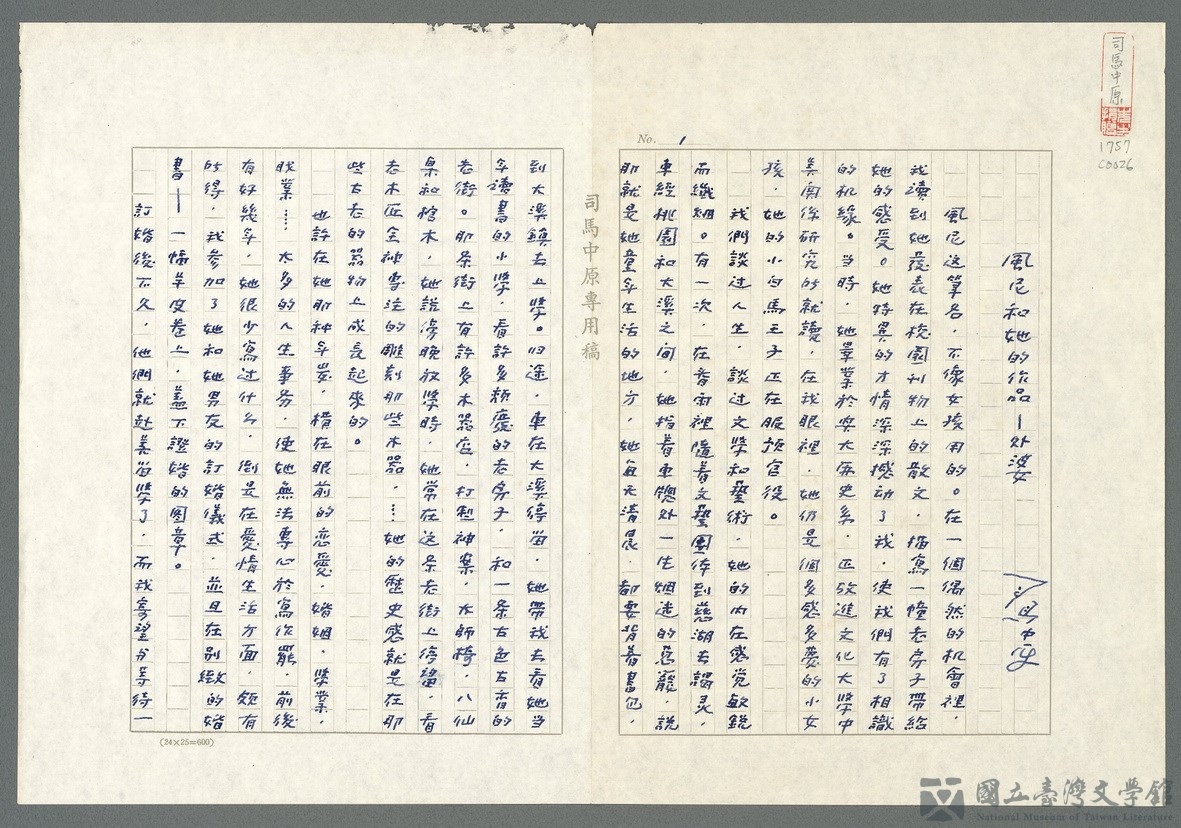 司馬中原
1757
C0026
No. 1
風尼和她的作品—外婆
司馬中原
風尼這筆名,不像女孩用的。在一個偶然的機會裡,
我讀到她發表在校園刊物上的散文,描寫一幢老房子帶給
她的感受。她特異的才情深深撼動了我,使我們有了相識
的機緣。當時,她畢業於興大歷史系,正攻進文化大學中
美關係研究所就讀,在我眼裡,她仍是個多感多夢的小女
孩,她的小白馬王子正在服預官役。
我們談过人生,談过文學和藝術,她的內在感觉敏銳
而纖細。有一次,在春雨裡隨着文藝團体到慈湖去謁灵,
車經桃園和大溪之间,她指着車窗外一片烟迷的葱蘢,說
那就是她童年生活的地方,她每天清晨,都要背着書包,
司馬中原專用稿
到大溪鎮去上學。归途,車在大溪停留,她帶我去看她当
年讀書的小學,看許多頹廢的老房子,和一条古色古香的
老街。那条街上有許多木器店,打製神案,太師椅,八仙
桌和棺木,她說傍晚放學時,她常在这条老街上停蹓,看
老木匠全神專注的雕刻那些木器,……她的歷史感就是在那
些古老的器物上成長起來的。
也許在她那种年崴,橫在眼前的恋愛,婚姻,學業,
就業……太多的人生事务,使她無法專心於寫作罷,前後
有好幾年,她很少寫过什么,倒是在愛情生活方面,頗有
所得,我参加了她和她男友的訂婚儀式,並且在别緻的婚
書——一幅羊皮卷上,蓋下證婚的圖章。
訂婚後不久,他們就赴美留學了,而我寄望与等待一
(24×25=600)
國立臺灣文學館
National Museum of Taiwan Literature